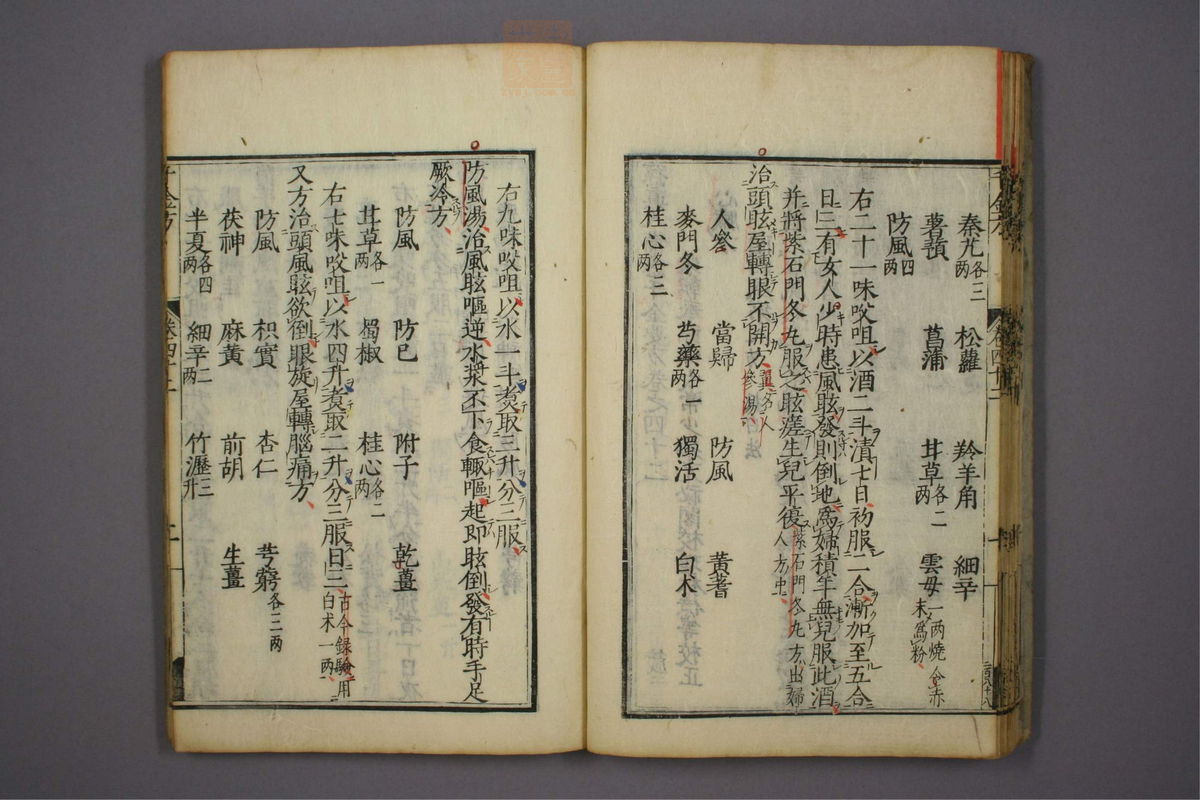 秦艽各三兩　松蘿　羚羊角　細辛
薯蕷　菖蒲　甘草各二兩　雲母一兩燒令赤末爲粉
防風四兩
右二十一味㕮咀以酒二斗漬七日初服一合漸加至五合
日三有女人少時患風眩發則倒地爲婦積年無兒服此酒
并將紫石門冬丸服之眩瘥生兒平復紫石門冬丸方出婦人方中
治頭眩屋轉眼不開方翼名人參湯
人參　當歸　防風　黃耆
麥門冬　芍藥各一兩　獨活　白朮
桂心各三兩
右九味㕮咀以水一斗煑取三升分三服
防風湯治風眩嘔逆水漿不下食輒嘔起即眩倒發有時手足
厥冷方
防風　防已　附子　乾薑
甘草各一兩　蜀椒　桂心各二兩
右七味㕮咀以水四升煑取二升分三服日三古今錄驗用白朮一兩
又方治頭風眩欲倒眼旋屋轉腦痛方
防風　枳實　杏仁　芎藭各三兩
茯神　麻黃　前胡　生薑
半夏各四兩　細辛二兩　竹瀝三升
千金方　卷四十二　二